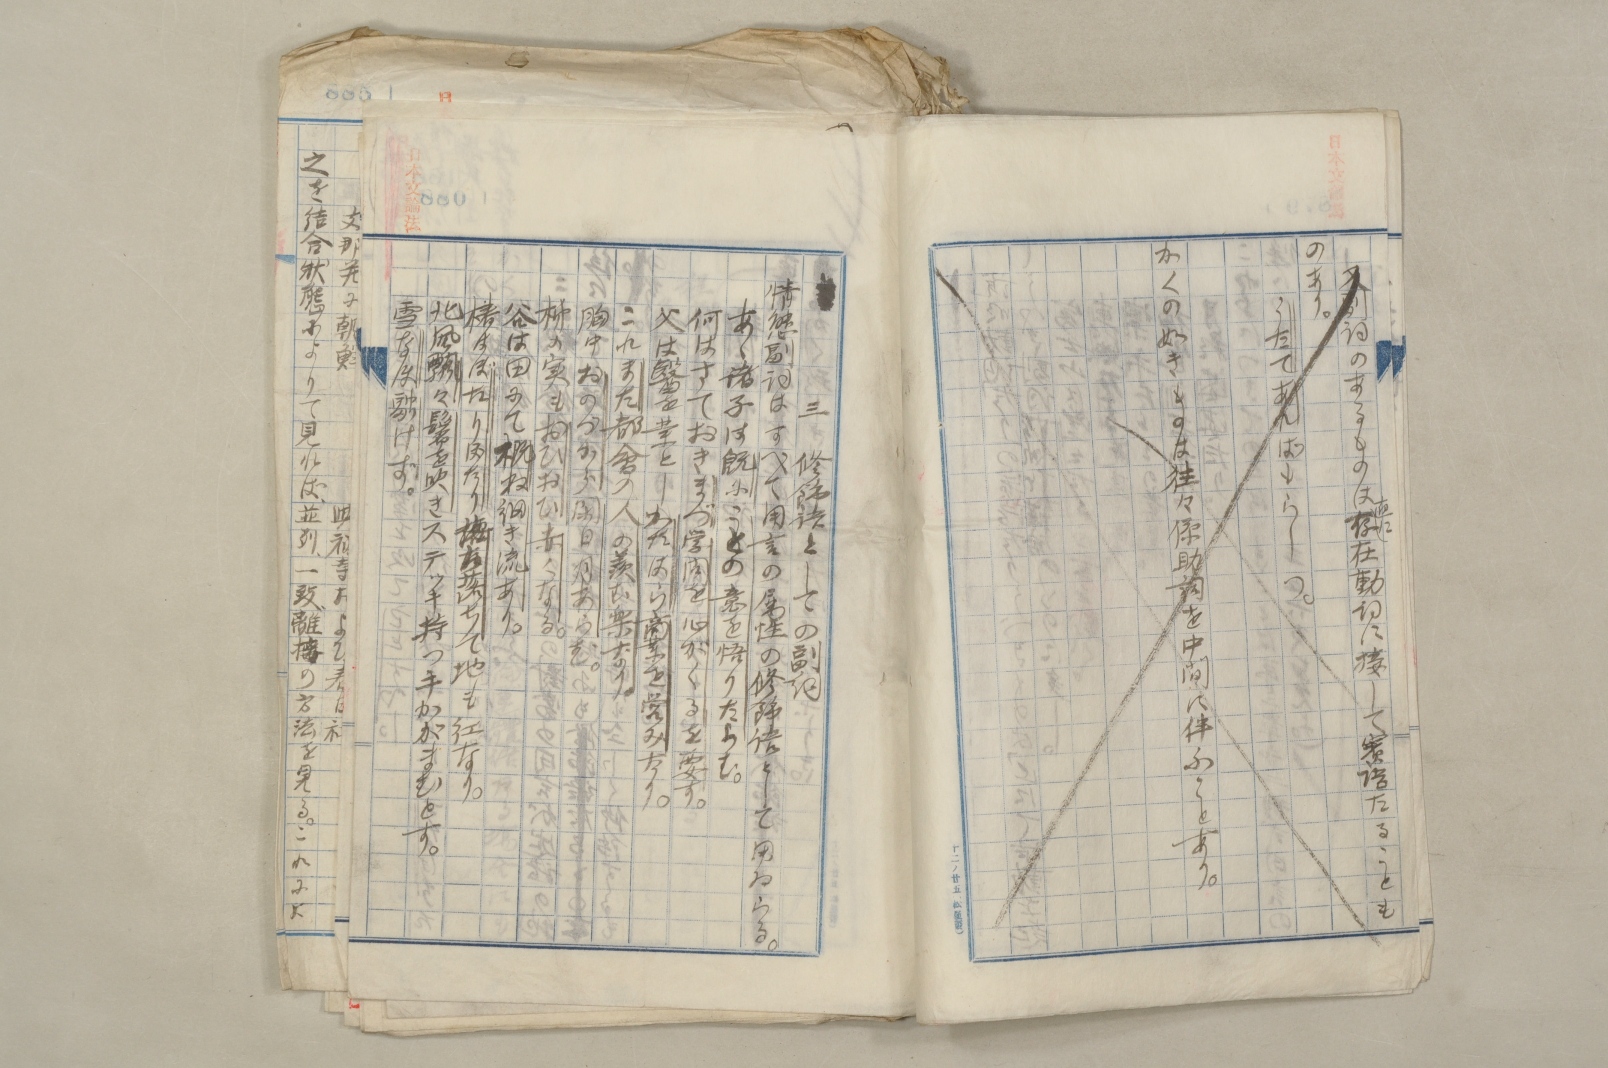 副詞のあるものは直に存在動詞に接して賓語たることも
のあり。
うたてあればもらしつ。
かくの如きものは往々係助詞を中間に伴ふことあり。
日本文論法
三 修飾語としての副詞
情態副詞はすべて用言の属性の修飾語として用ゐらる。
あゝ諸子は既にことの意を悟りたらむ。
何はさておきまづ学問を心がくるを要す。
父は医を業としかたはら商業を営みたり。
これまた都会の人の羨む楽なり。
胸中おのづから閑日月あらむ。
柿の実もおひおひ赤くなる。
谷は田にて概ね細き流あり。
椿はぼたりぼたり落ちて地も紅なり。
北風飄々鬢を吹きステッキ持つ手かがまむとす。
雪なほ融けず。
支那并に朝鮮
興福寺および春日社
之を結合状態によりて見れば、並列、一致、離接の方法を見る。これによ